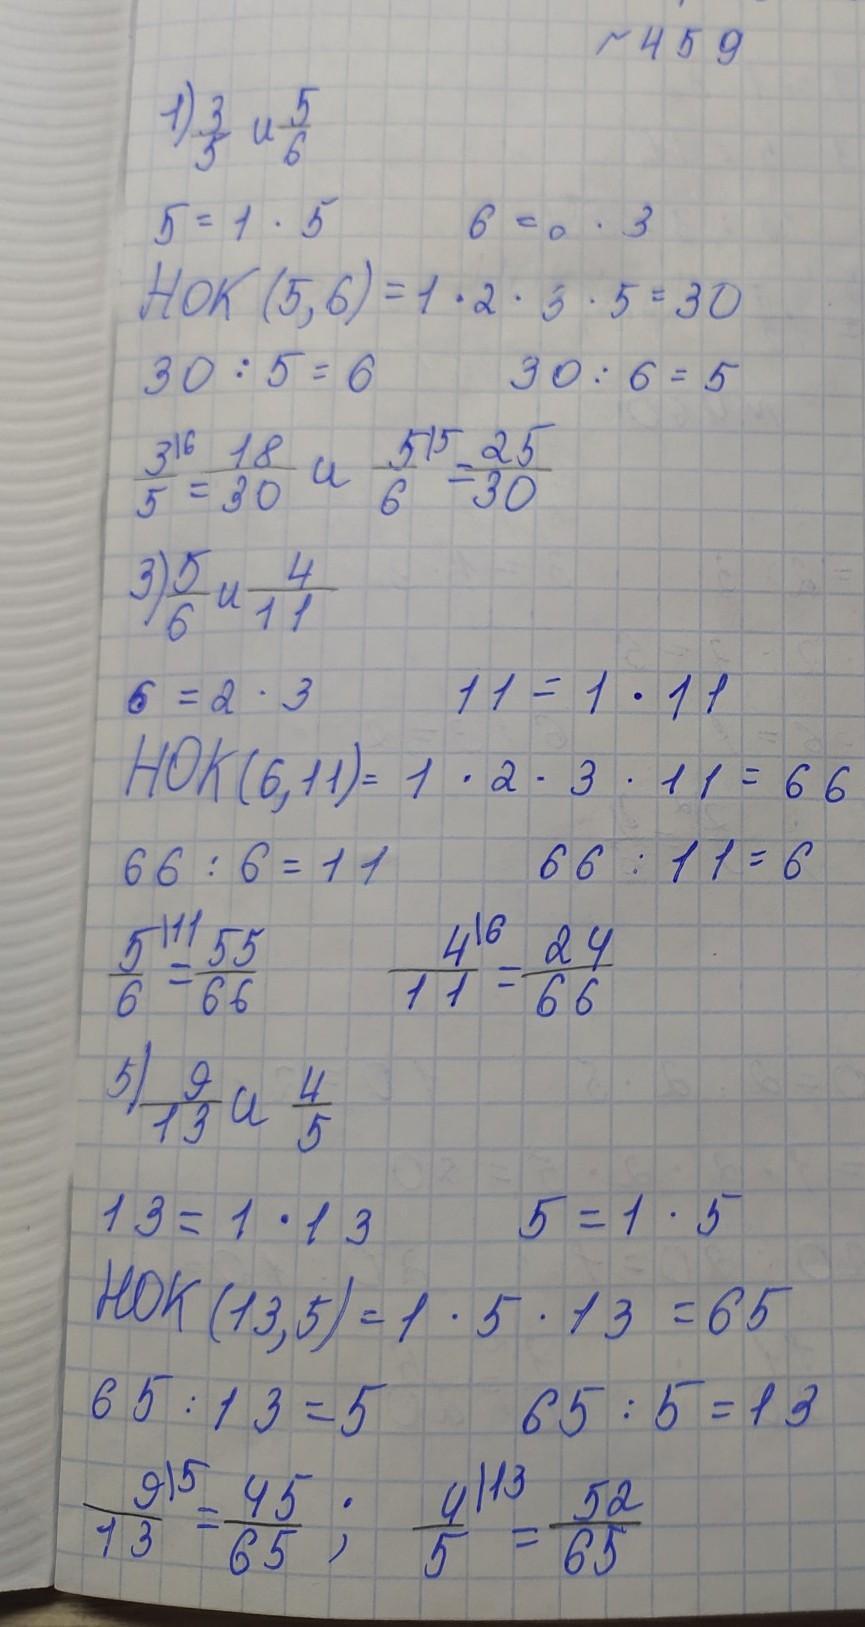 №459
1) 3/5 и 5/6
5 = 1 · 5 6 = 2 · 3
НОК (5,6) = 1 · 2 · 3 · 5 = 30
30 : 5 = 6 30 : 6 = 5
3\6/5 = 18/30 и 5\5/6 = 25/30
3) 5/6 и 4/11
6 = 2 · 3 11 = 1 · 11
НОК (6,11) = 1 · 2 · 3 · 11 = 66
66 : 6 = 11 66 : 11 = 6
5\11/6 = 55/66 4\6/11 = 24/66
5) 9/13 и 4/5
13 = 1 · 13 5 = 1 · 5
НОК (13,5) = 1 · 5 · 13 = 65
65 : 13 = 5 65 : 5 = 13
9\5/13 = 45/65 ; 4\13/5 = 52/65